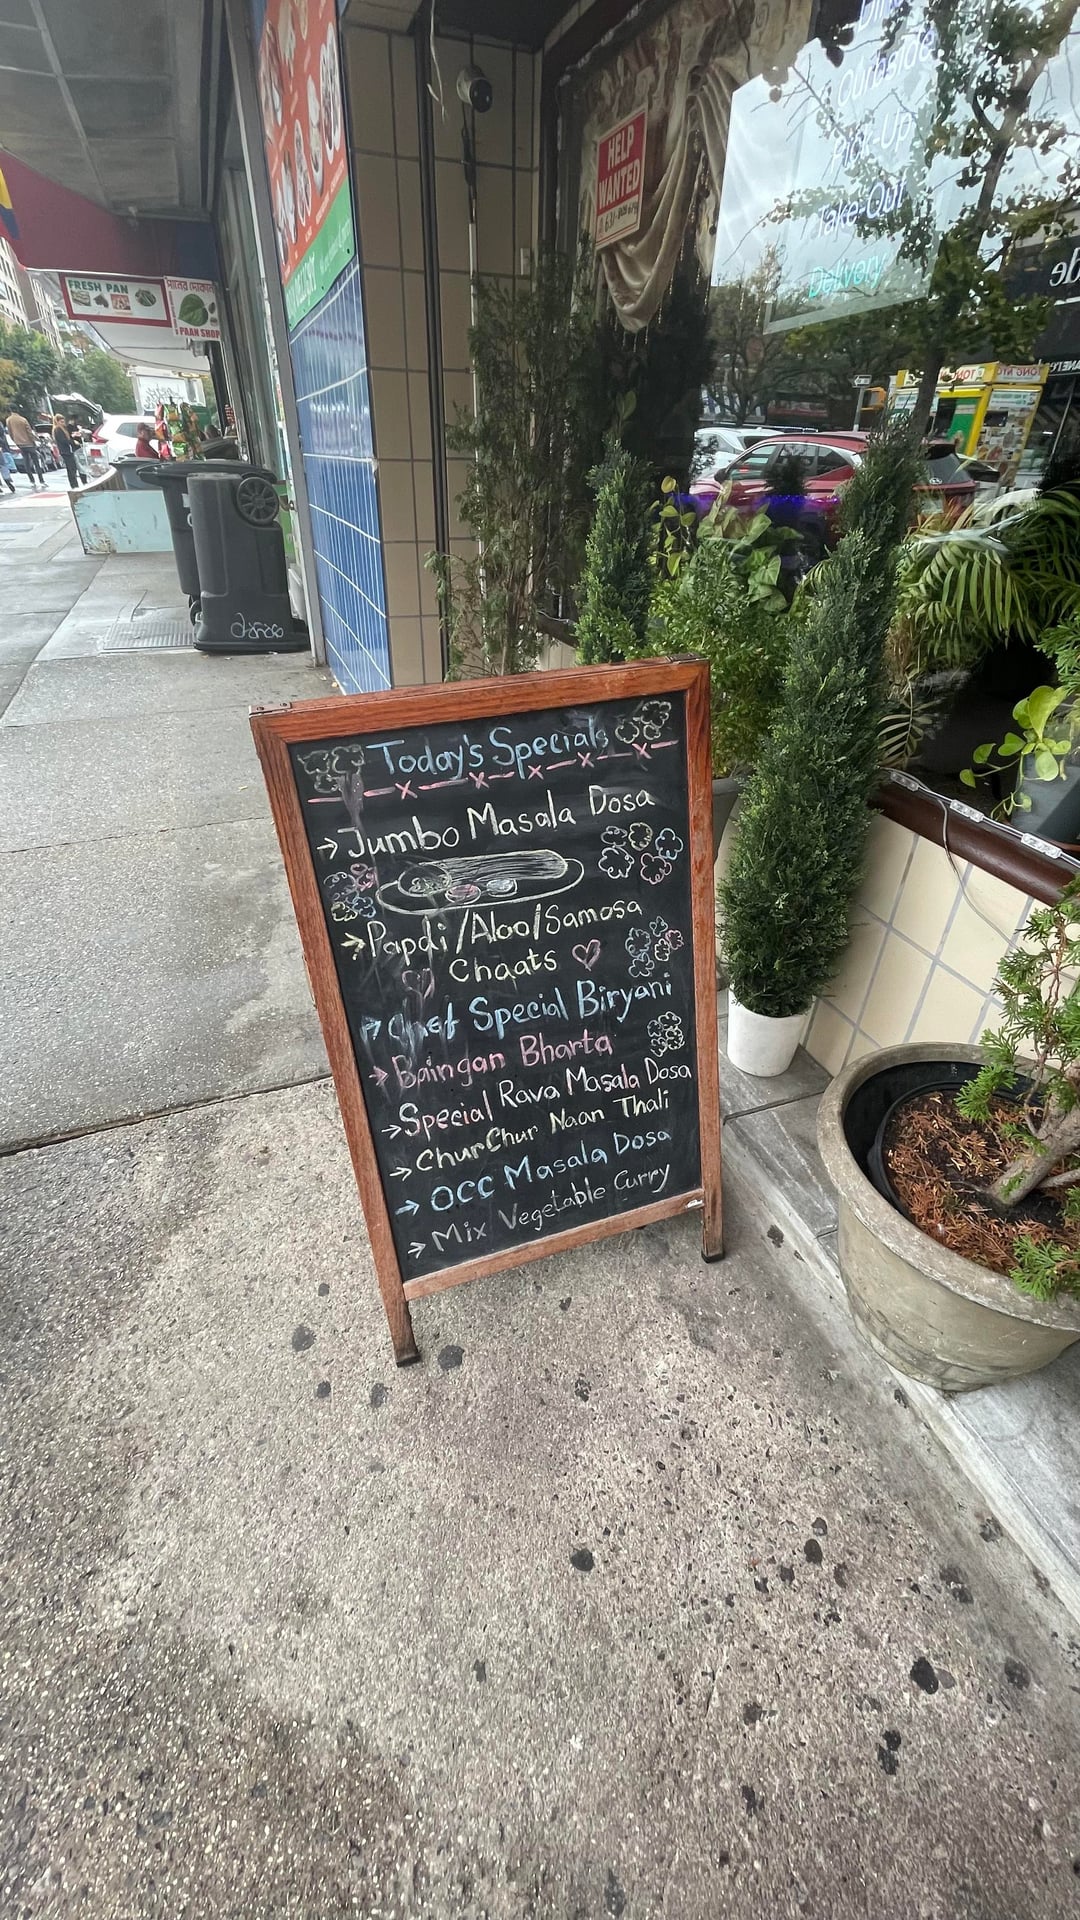 Today's Specials
→ Jumbo Masala Dosa
→ Papdi/Aloo/Samosa
Chaats
→ Chef Special Biryani
→ Baingan Bharta
→ Special Rava Masala Dosa
→ ChurChur Naan Thali
→ OCC Masala Dosa
→ Mix Vegetable Curry
HELP
WANTED
Curbside
Pick-Up
Take-Out
Delivery
FRESH PAN
PAAN SHOP